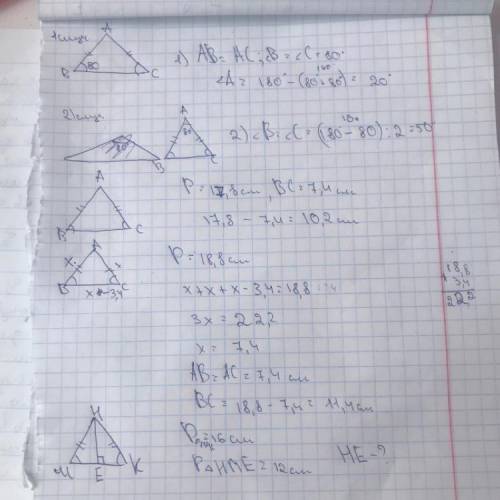 1)
A
B 80 C
1) AB = AC; ∠B = ∠C = 80°
160
∠A = 180° - (80° + 80°) = 20°
2)
80°
A
80
B C
100
2) ∠B = ∠C = (180 - 80) : 2 = 50°
A
B C
P = 17,8 см, BC = 7,4 см
17,8 - 7,4 = 10,2 см
A
x
B C
x - 3,4
P = 18,8 см
x + x + x - 3,4 = 18,8
18,8
3,4
22,2
3x = 22,2
x = 7,4
AB = AC = 7,4 см
BC = 18,8 - 7,4 = 11,4 см
H
M E K
P = 16 см
P△HME = 12 см
HE - ?